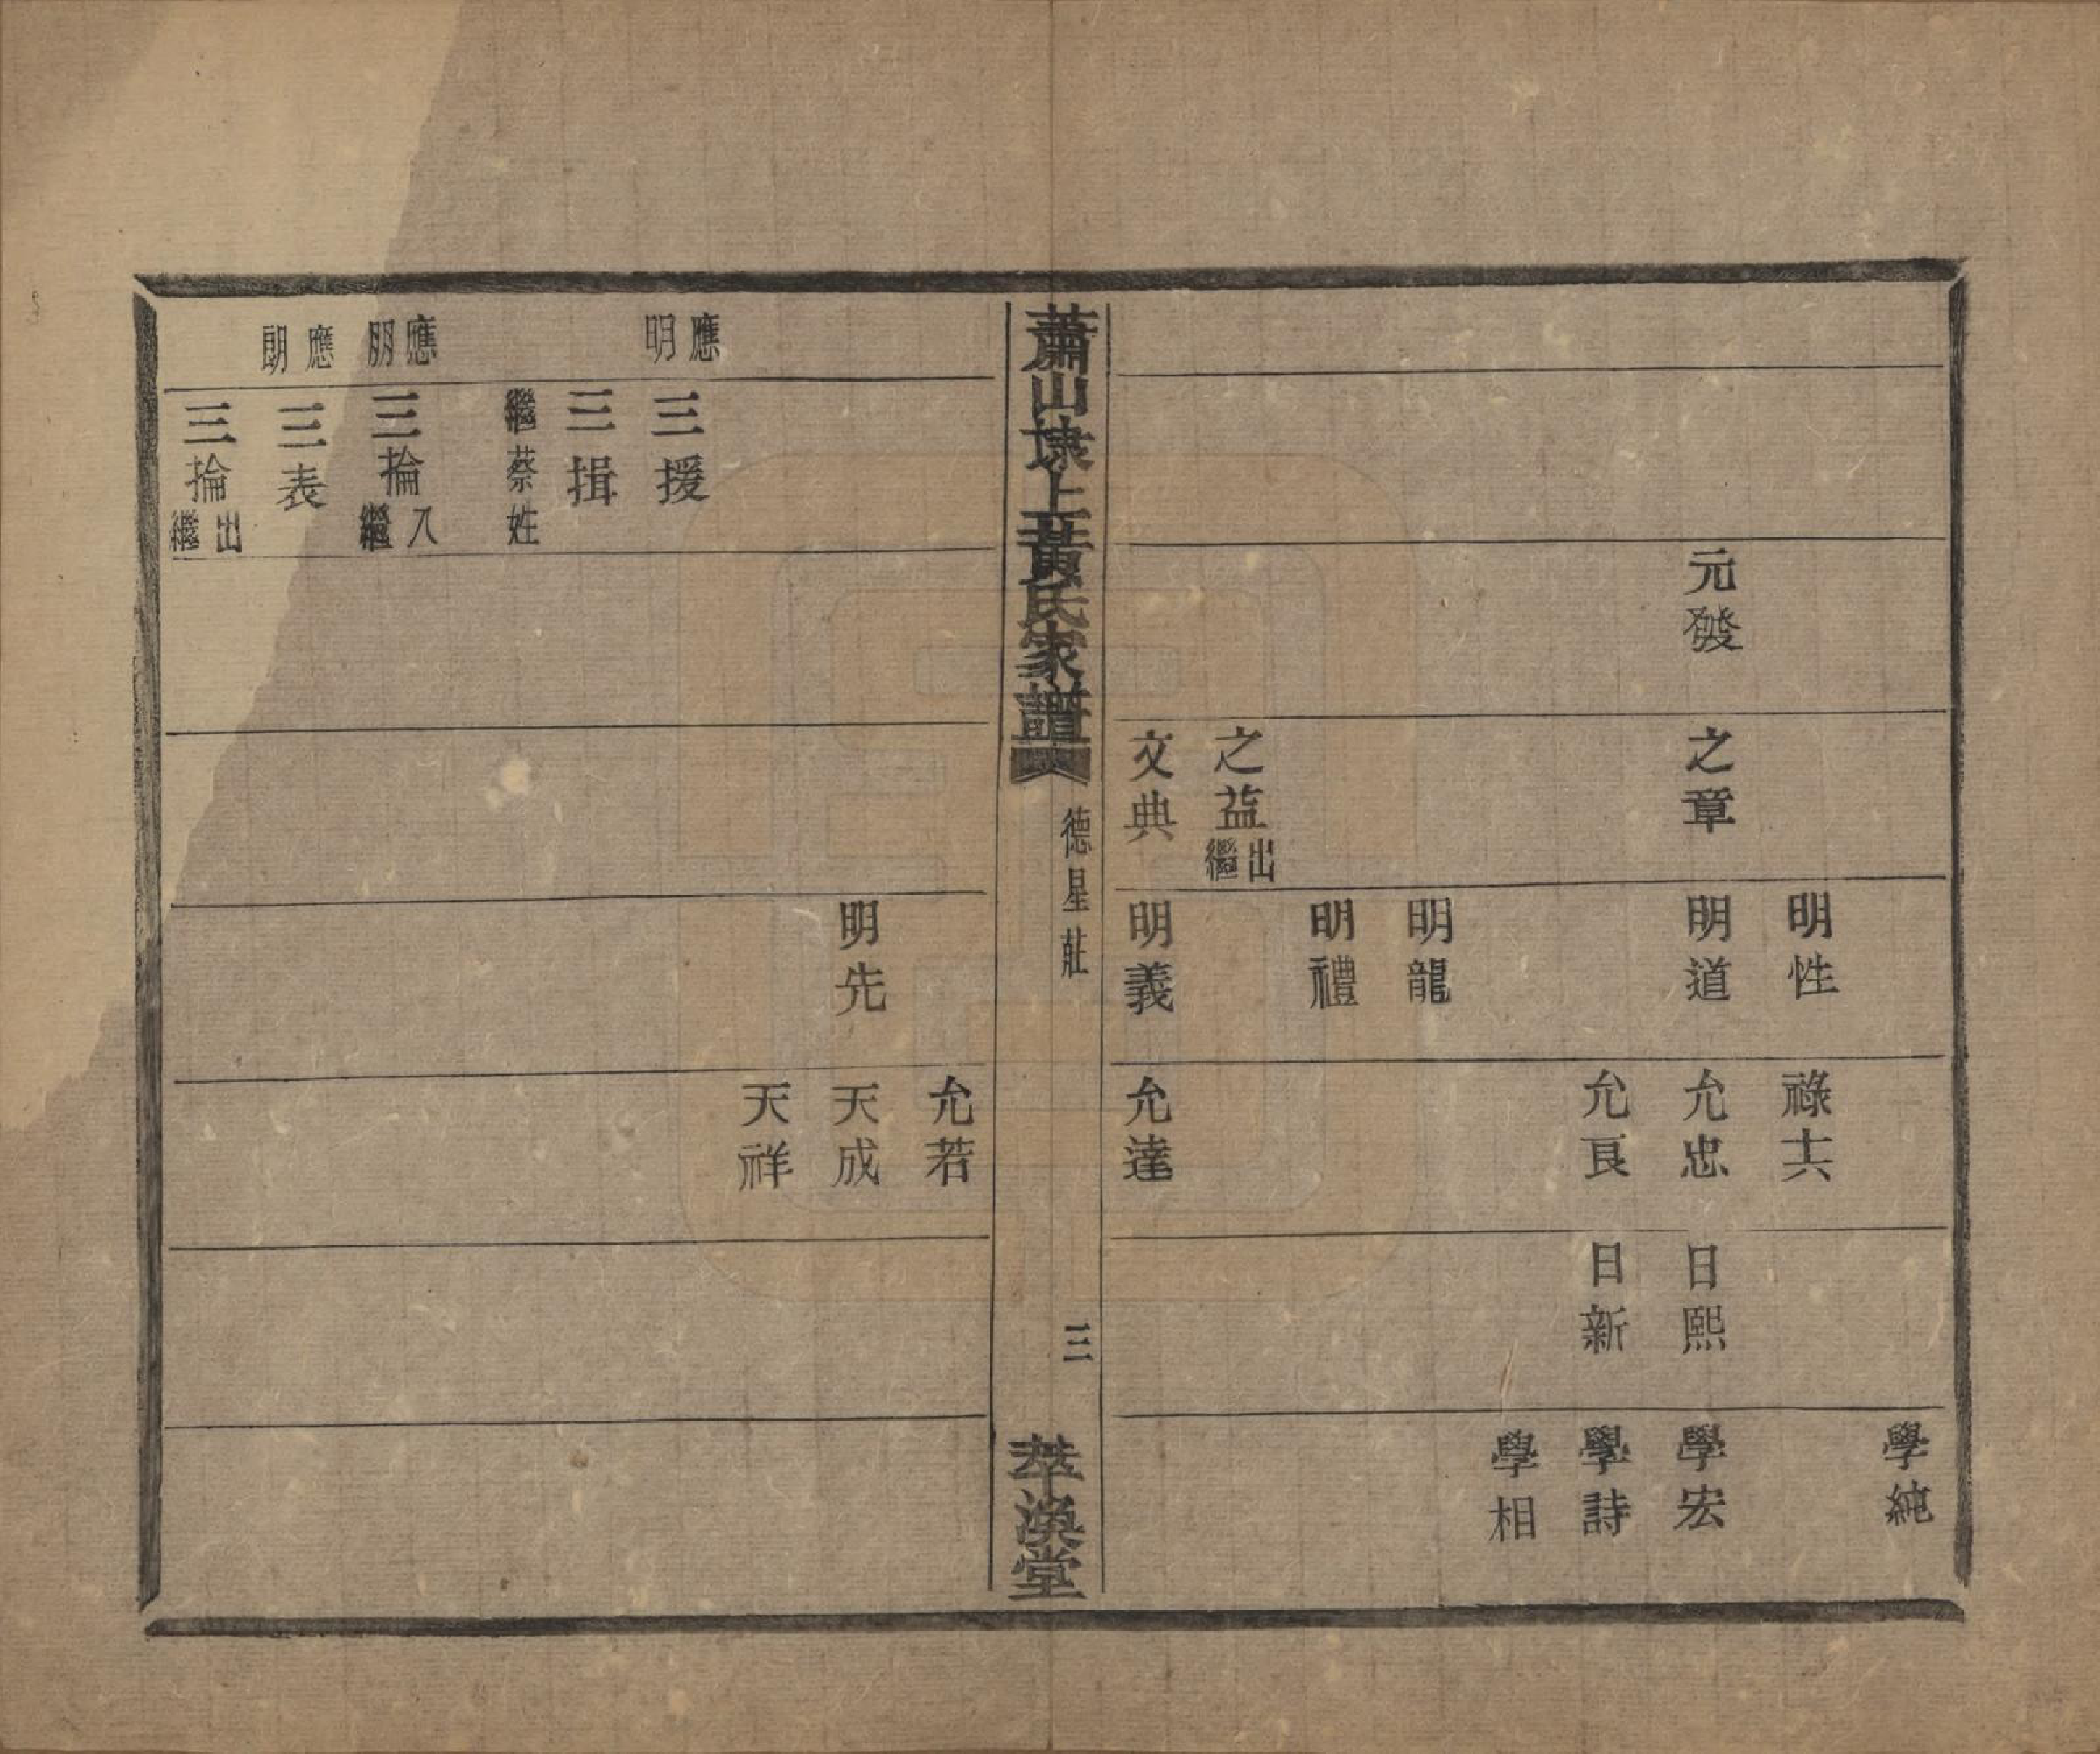 元發
之章
之益出繼
文典
明性
明道
明龍
明禮
明義
祿十六
允忠
允良
允達
日熙
日新
學純
學宏
學詩
學相
蕭山埭上黃氏家譜
德星莊
三
萃渙堂
應明
應朋
應朗
三援
三揖
繼蔡姓
三掄入繼
三表
三掄出繼
明先
允若
天成
天祥